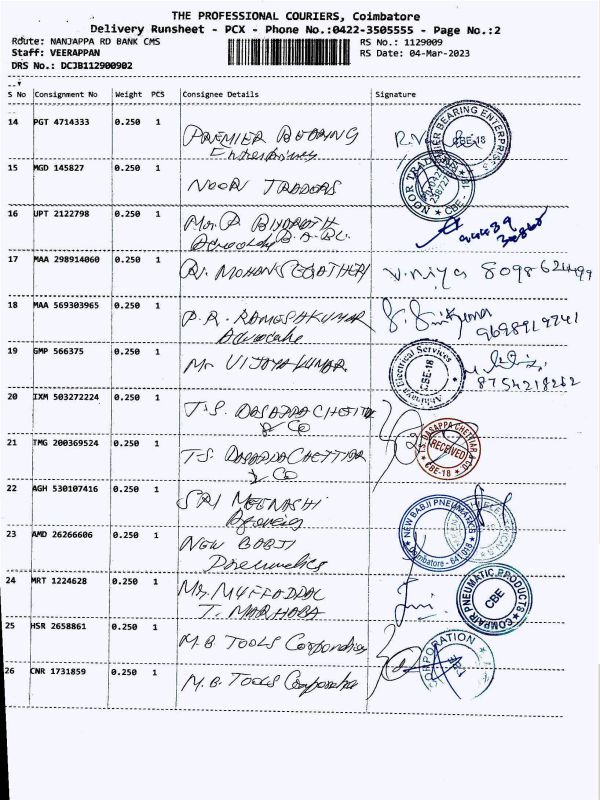 THE PROFESSIONAL COURIERS, Coimbatore
Delivery Runsheet - PCX - Phone No.:0422-3505555 - Page No.:2
Route: NANJAPPA RD BANK CMS RS No.: 1129009
Staff: VEERAPPAN RS Date: 04-Mar-2023
DRS No.: DCJB112900902
S No Consignment No Weight PCS Consignee Details Signature
14 PGT 4714333 0.250 1 PREMIER BEARING
Enterprises
PREMIER BEARING ENTERPRISES CBE-18
15 MGD 145827 0.250 1 NOOR TRADERS
NOOR TRADERS CBE-18
16 UPT 2122798 0.250 1
Advocate B.A.BL.
17 MAA 298914060 0.250 1 V.niya
18 MAA 569303965 0.250 1 P.R. RAMESHKUMAR
Advocate
9698919741
19 GMP 566375 0.250 1 Mr VIJAYAKUMAR
Abhinaya Electrical Services CBE-18
8754218282
20 IXM 503272224 0.250 1 T.S. DASAPPA CHETTIAR
& Co
21 TMG 200369524 0.250 1 T.S. DASAPPA CHETTIAR
& Co
T.S. DASAPPA CHETTIAR & CO RECEIVED CBE-18
22 AGH 530107416 0.250 1 SRI MEENASHI
Agencies
23 AMD 26266606 0.250 1 NEW BABJI
Pneumatics
NEW BABJI PNEUMATICS Coimbatore - 641 018
24 MRT 1224628 0.250 1 Mr. MUFFADDAL
T. MARHABA
COMPAIR PNEUMATIC PRODUCTS CBE
25 HSR 2658861 0.250 1 M.B TOOLS Corporation
26 CNR 1731859 0.250 1 M.B. TOOLS Corporation
CORPORATION